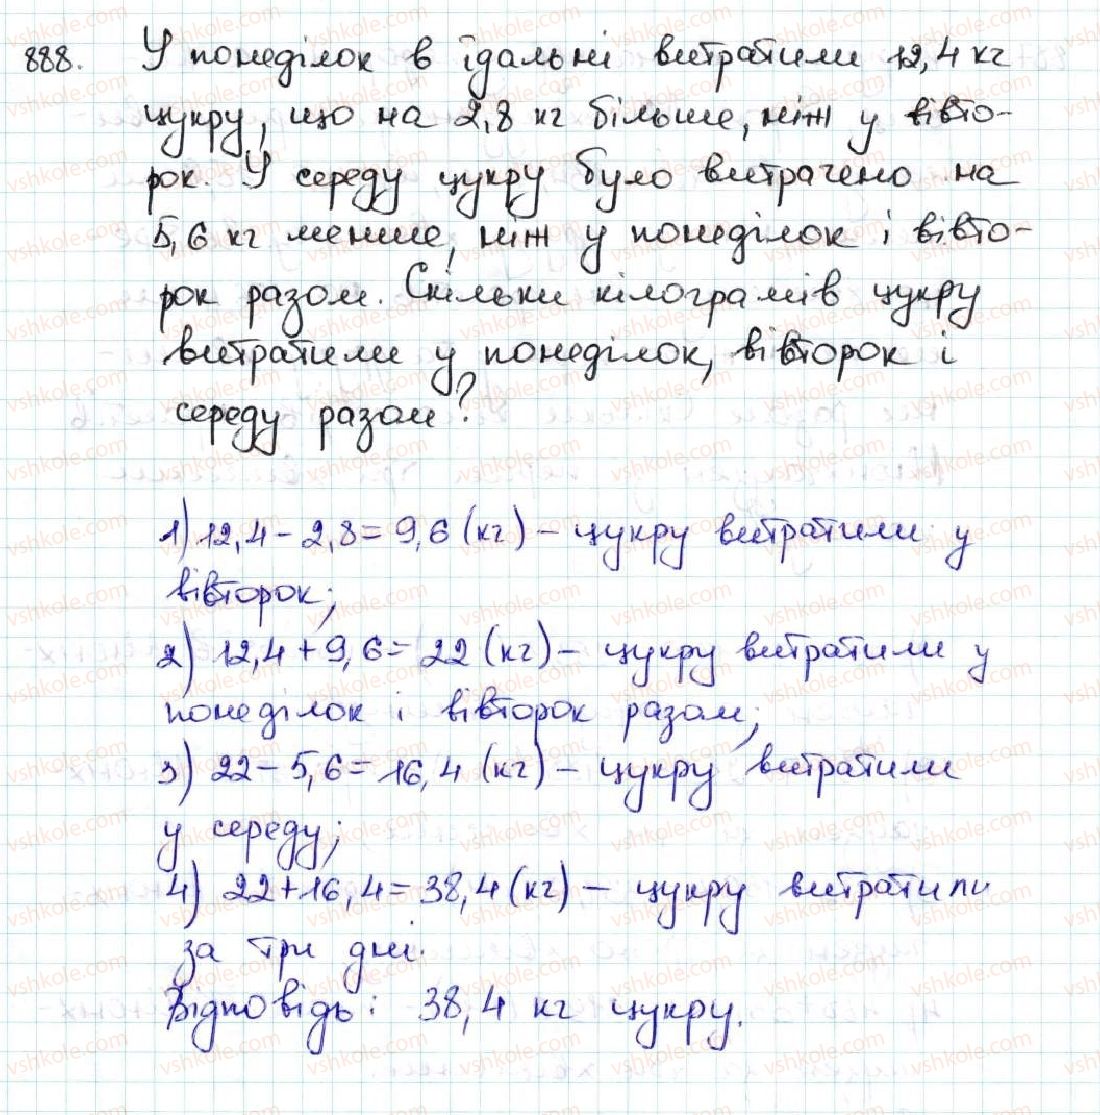 888. У понеділок в їдальні витратили 12,4 кг
цукру, що на 2,8 кг більше, ніж у вівто-
рок. У середу цукру було витрачено на
5,6 кг менше, ніж у понеділок і вівто-
рок разом. Скільки кілограмів цукру
витратили у понеділок, вівторок і
середу разом?
1) 12,4 - 2,8 = 9,6 (кг) - цукру витратили у
вівторок;
2) 12,4 + 9,6 = 22 (кг) - цукру витратили у
понеділок і вівторок разом;
3) 22 - 5,6 = 16,4 (кг) - цукру витратили
у середу;
4) 22 + 16,4 = 38,4 (кг) - цукру витратили
за три дні.
Відповідь: 38,4 кг цукру.
vshkole.com